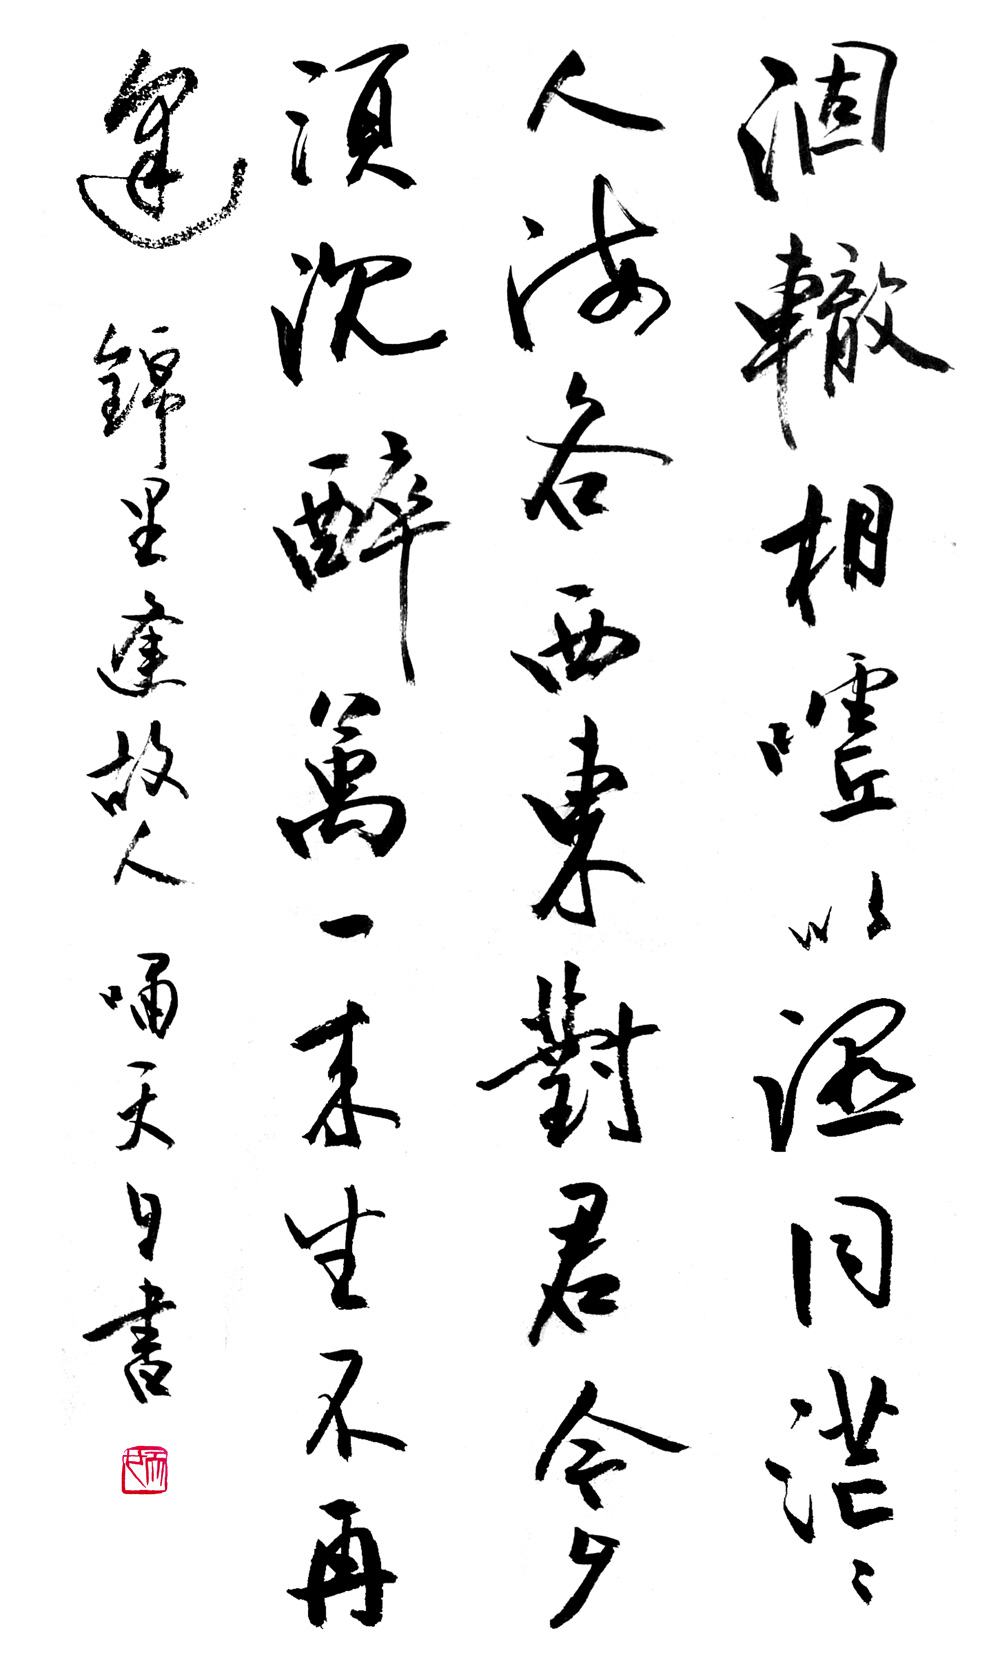 涸轍相噓以濕同茫々
人海各西東對君今夕
須沈醉萬一來生不再
逢 錦里逢故人 嘯天自書